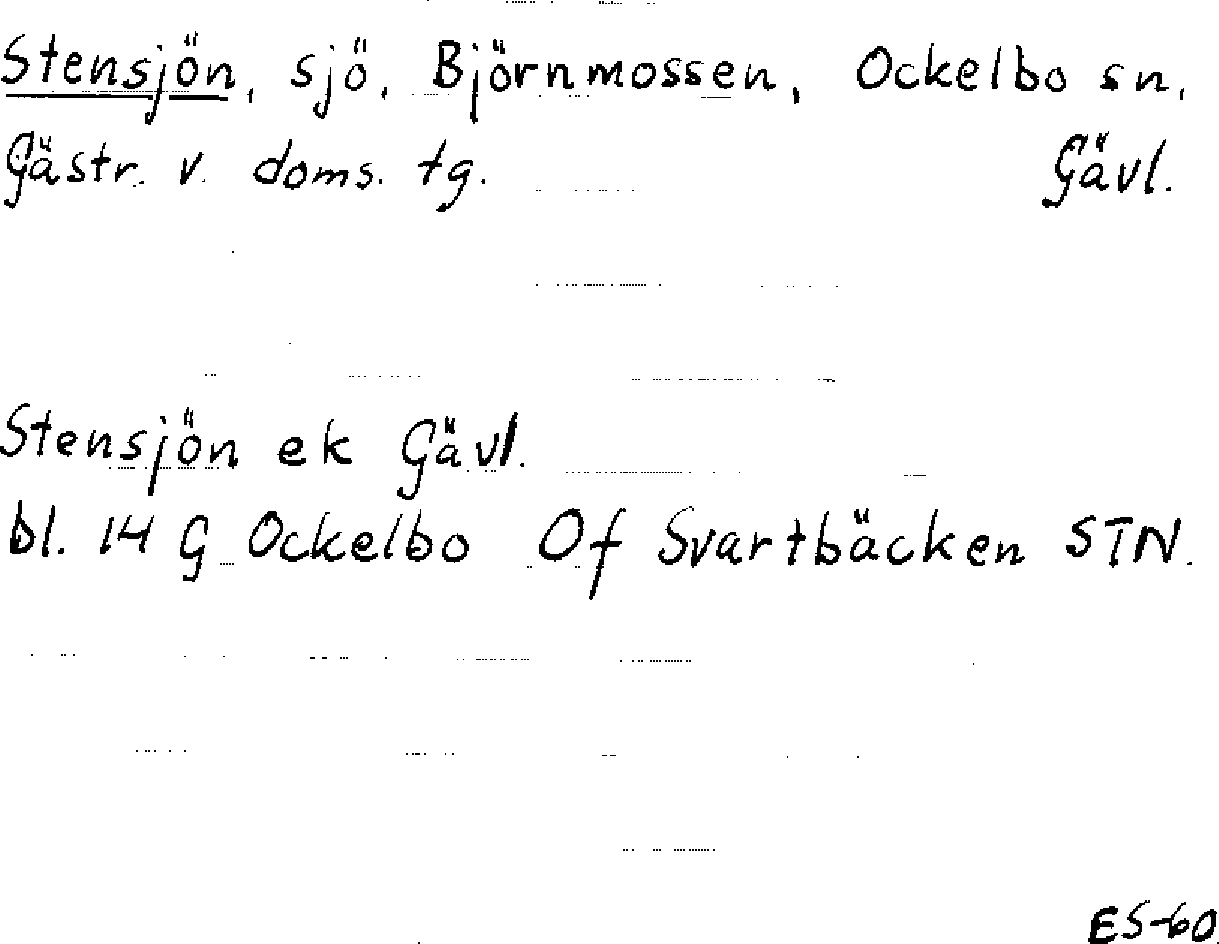 Stensjön, sjö, Björnmossen, Ockelbo sn,
Gästr. v. doms. tg. Gävl.
Stensjön ek Gävl.
bl. 14 G Ockelbo Of Svartbäcken STN.
ES-60